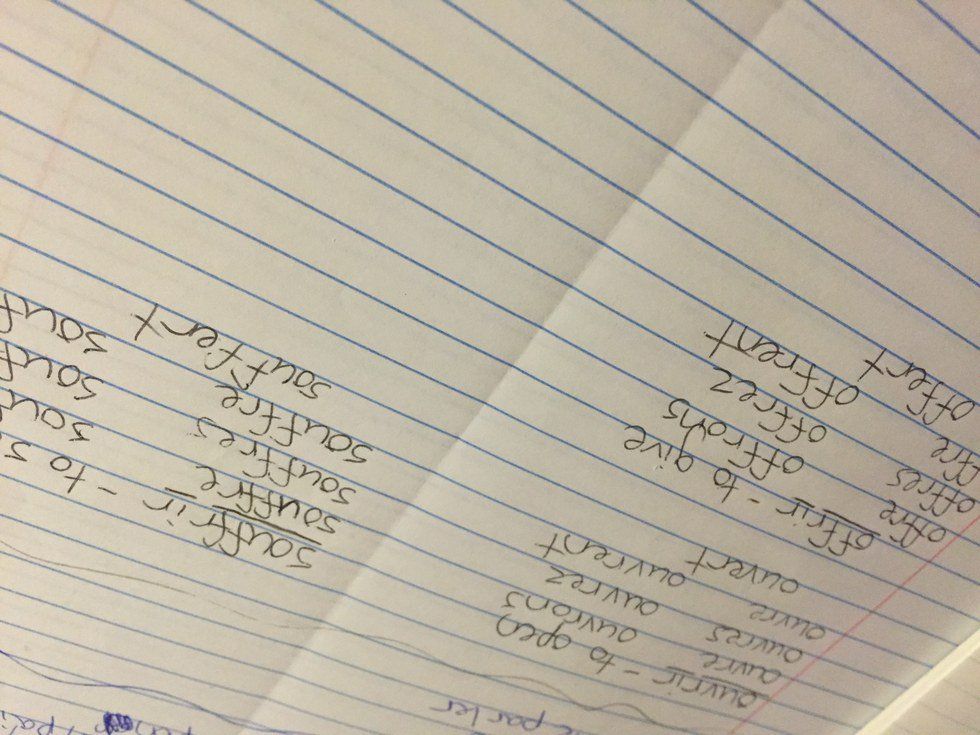 parler
ouvrir - to open
ouvre ouvrons
ouvres ouvrez
ouvre ouvrent
ouvert
offrir - to give
offre offrons
offres offrez
ffre offrent
offert
souffrir - to s
souffre sou
souffres souf
souffre souf
souffert